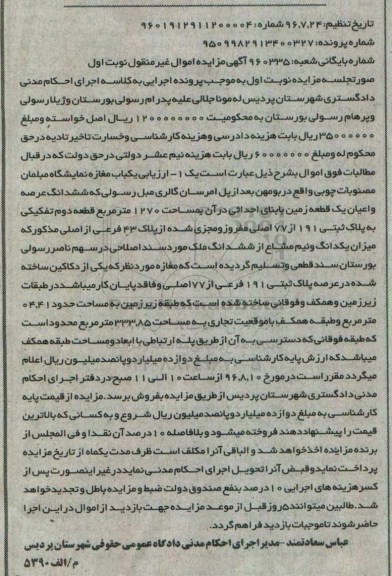 تاریخ تنظیم: ۹۶.۷.۲۴ شماره: ۹۶۰۱۹۱۲۹۱۱۲۰۰۰۰۴
شماره پرونده: ۹۵۰۹۹۸۲۹۱۳۴۰۰۳۲۷
شماره بایگانی شعبه: ۹۶۰۳۳۵ آگهی مزایده اموال غیر منقول نوبت اول
صورتجلسه مزایده نوبت اول به موجب پرونده اجرایی به کلاسه اجرای احکام مدنی
دادگستری شهرستان پردیس له مونا جلالی علیه پدرام رسولی بورستان و ژیلا رسولی
و پرهام رسولی بورستان به محکومیت ۱۲۰۰۰۰۰۰۰۰ ریال اصل خواسته و مبلغ
۳۵۰۰۰۰۰۰ ریال بابت هزینه دادرسی و هزینه کارشناسی و خسارت تاخیر تادیه در حق
محکوم له و مبلغ ۶۰۰۰۰۰۰۰ ریال بابت هزینه نیم عشر دولتی در حق دولت که در قبال
مطالبات فوق اموال بشرح ذیل عبارت است یک ۱- ارزیابی یکباب مغازه نمایشگاه مبلمان
مصنوعات چوبی واقع در بومهن بعد از پل امرسان گالری مبل رسولی که ششدانگ عرصه
و اعیان یک قطعه زمین با بنای احداثی در آن بمساحت ۱۲۷۰ متر مربع قطعه دوم تفکیکی
به پلاک ثبتی ۱۹۱ از ۷۷ اصلی مفروز و مجزی شده از پلاک ۴۳ فرعی از اصلی مذکور که
میزان یکدانگ و نیم مشاع از ششدانگ ملک مورد سند اصلاحی در سهم ناصر رسولی
بورستان سند قطعی و تسلیم گردیده است که مغازه مورد نظر که یکی از دکاکین ساخته
شده در عرصه پلاک ثبتی ۱۹۱ فرعی از ۷۷ اصلی و فاقد پایان کار میباشد در طبقات
زیر زمین و همکف و فوقانی ساخته شده است که طبقه زیر زمین به مساحت حدود ۴۰۴.۴۱
متر مربع و طبقه همکف با موقعیت تجاری به مساحت ۳۳۳.۸۵ متر مربع محدود است
که طبقه فوقانی که دسترسی به آن از طریق پله ارتباطی با ابعاد و مساحت طبقه همکف
میباشد که ارزش پایه کارشناسی به مبلغ دوازده میلیارد و پانصد میلیون ریال اعلام
میگردد مقرر است در مورخ ۹۶.۸.۱۰ از ساعت ۱۰ الی ۱۱ صبح در دفتر اجرای احکام
مدنی دادگستری شهرستان پردیس از طریق مزایده بفروش برسد. مزایده از قیمت پایه
کارشناسی به مبلغ دوازده میلیارد و پانصد میلیون ریال شروع و به کسانی که بالاترین
قیمت را پیشنهاد دهند فروخته میشود و بلافاصله ۱۰ درصد آن نقدا و فی المجلس از
برنده مزایده اخذ خواهد شد و الباقی آنرا مکلف است ظرف مدت یکماه از تاریخ مزایده
پرداخت نماید و قبض آنرا تحویل اجرای احکام مدنی نماید در غیر اینصورت پس از
کسر هزینه های اجرایی ۱۰ درصد بنفع صندوق دولت ضبط و مزایده باطل و تجدید خواهد
شد. طالبین میتوانند ۵ روز قبل از موعد مزایده جهت بازدید از اموال در این اجرا
حاضر شوند تا موجبات بازدید فراهم گردد.
عباس سعادتمند - مدیر اجرای احکام مدنی دادگاه عمومی حقوقی شهرستان پردیس
م/الف ۵۳۹۰